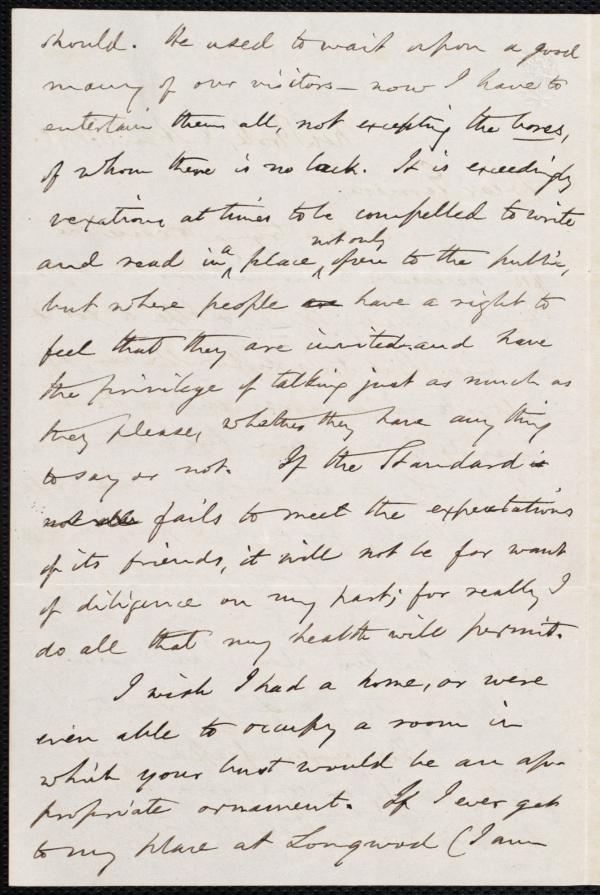 should. He used to wait upon a good
many of our visitors — now I have to
entertain them all, not excepting the bores,
of whom there is no lack. It is exceedingly
vexatious at times to be compelled to write
and read in a place, not only open to the public,
but where people are have a right to
feel that they are invited, and have
the privilege of talking just as much as
they please, whether they have any thing
to say or not. If the Standard is
not fails to meet the expectations
of its friends, it will not be for want
of diligence on my part; for really I
do all that my health will permit.
I wish I had a home, or were
even able to occupy a room in
which your bust would be an ap-
propriate ornament. If I ever get
to my place at Longwood (I am